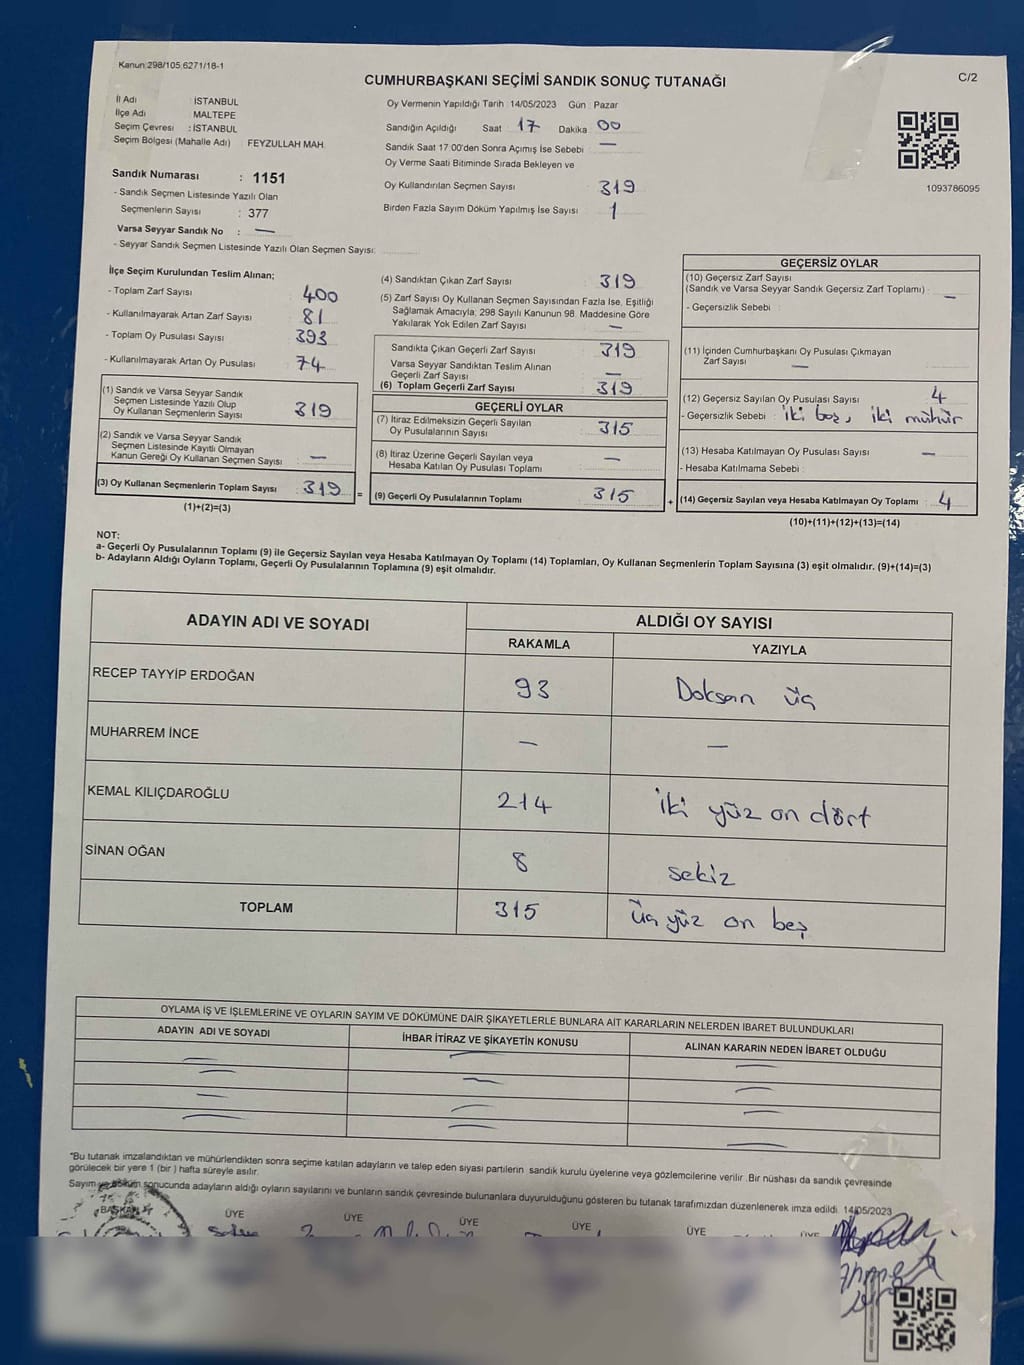 Kanun:298/105,6271/18-1
C/2
CUMHURBAŞKANI SEÇİMİ SANDIK SONUÇ TUTANAĞI
İl Adı : İSTANBUL
İlçe Adı : MALTEPE
Seçim Çevresi : İSTANBUL
Seçim Bölgesi (Mahalle Adı) FEYZULLAH MAH.
Oy Vermenin Yapıldığı Tarih : 14/05/2023 Gün : Pazar
Sandığın Açıldığı Saat 17 Dakika 00
Sandık Saat 17:00'den Sonra Açımış İse Sebebi : —
Oy Verme Saati Bitiminde Sırada Bekleyen ve
Oy Kullandırılan Seçmen Sayısı 319
Birden Fazla Sayım Döküm Yapılmış İse Sayısı 1
1093786095
Sandık Numarası : 1151
- Sandık Seçmen Listesinde Yazılı Olan
Seçmenlerin Sayısı : 377
Varsa Seyyar Sandık No : —
- Seyyar Sandık Seçmen Listesinde Yazılı Olan Seçmen Sayısı:
İlçe Seçim Kurulundan Teslim Alınan;
- Toplam Zarf Sayısı 400
- Kullanılmayarak Artan Zarf Sayısı : 81
- Toplam Oy Pusulası Sayısı : 393
- Kullanılmayarak Artan Oy Pusulası : 74
(1) Sandık ve Varsa Seyyar Sandık
Seçmen Listesinde Yazılı Olup
Oy Kullanan Seçmenlerin Sayısı 319
(2) Sandık ve Varsa Seyyar Sandık
Seçmen Listesinde Kayıtlı Olmayan
Kanun Gereği Oy Kullanan Seçmen Sayısı : —
(3) Oy Kullanan Seçmenlerin Toplam Sayısı : 319 =
(1)+(2)=(3)
(4) Sandıktan Çıkan Zarf Sayısı 319
(5) Zarf Sayısı Oy Kullanan Seçmen Sayısından Fazla İse, Eşitliği
Sağlamak Amacıyla, 298 Sayılı Kanunun 98. Maddesine Göre
Yakılarak Yok Edilen Zarf Sayısı : —
Sandıkta Çıkan Geçerli Zarf Sayısı : 319
Varsa Seyyar Sandıktan Teslim Alınan
Geçerli Zarf Sayısı : —
(6) Toplam Geçerli Zarf Sayısı : 319
GEÇERLİ OYLAR
(7) İtiraz Edilmeksizin Geçerli Sayılan
Oy Pusulalarının Sayısı : 315
(8) İtiraz Üzerine Geçerli Sayılan veya
Hesaba Katılan Oy Pusulası Toplamı : —
(9) Geçerli Oy Pusulalarının Toplamı : 315 +
GEÇERSİZ OYLAR
(10) Geçersiz Zarf Sayısı
(Sandık ve Varsa Seyyar Sandık Geçersiz Zarf Toplamı) : —
- Geçersizlik Sebebi :
(11) İçinden Cumhurbaşkanı Oy Pusulası Çıkmayan
Zarf Sayısı : —
(12) Geçersiz Sayılan Oy Pusulası Sayısı : 4
- Geçersizlik Sebebi : iki boş, iki mühür
(13) Hesaba Katılmayan Oy Pusulası Sayısı : —
- Hesaba Katılmama Sebebi :
(14) Geçersiz Sayılan veya Hesaba Katılmayan Oy Toplamı : 4
(10)+(11)+(12)+(13)=(14)
NOT:
a- Geçerli Oy Pusulalarının Toplamı (9) ile Geçersiz Sayılan veya Hesaba Katılmayan Oy Toplamı (14) Toplamları, Oy Kullanan Seçmenlerin Toplam Sayısına (3) eşit olmalıdır. (9)+(14)=(3)
b- Adayların Aldığı Oyların Toplamı, Geçerli Oy Pusulalarının Toplamına (9) eşit olmalıdır.
ADAYIN ADI VE SOYADI
ALDIĞI OY SAYISI
RAKAMLA YAZIYLA
RECEP TAYYİP ERDOĞAN 93 Doksan üç
MUHARREM İNCE — —
KEMAL KILIÇDAROĞLU 214 iki yüz on dört
SİNAN OĞAN 8 sekiz
TOPLAM 315 üç yüz on beş
OYLAMA İŞ VE İŞLEMLERİNE VE OYLARIN SAYIM VE DÖKÜMÜNE DAİR ŞİKAYETLERLE BUNLARA AİT KARARLARIN NELERDEN İBARET BULUNDUKLARI
ADAYIN ADI VE SOYADI İHBAR İTİRAZ VE ŞİKAYETİN KONUSU ALINAN KARARIN NEDEN İBARET OLDUĞU
*Bu tutanak imzalandıktan ve mühürlendikten sonra seçime katılan adayların ve talep eden siyasi partilerin sandık kurulu üyelerine veya gözlemcilerine verilir .Bir nüshası da sandık çevresinde
görülecek bir yere 1 (bir ) hafta süreyle asılır.
Sayım ve döküm sonucunda adayların aldığı oyların sayılarını ve bunların sandık çevresinde bulunanlara duyurulduğunu gösteren bu tutanak tarafımızdan düzenlenerek imza edildi. 14/05/2023
BAŞKAN ÜYE ÜYE ÜYE ÜYE ÜYE ÜYE